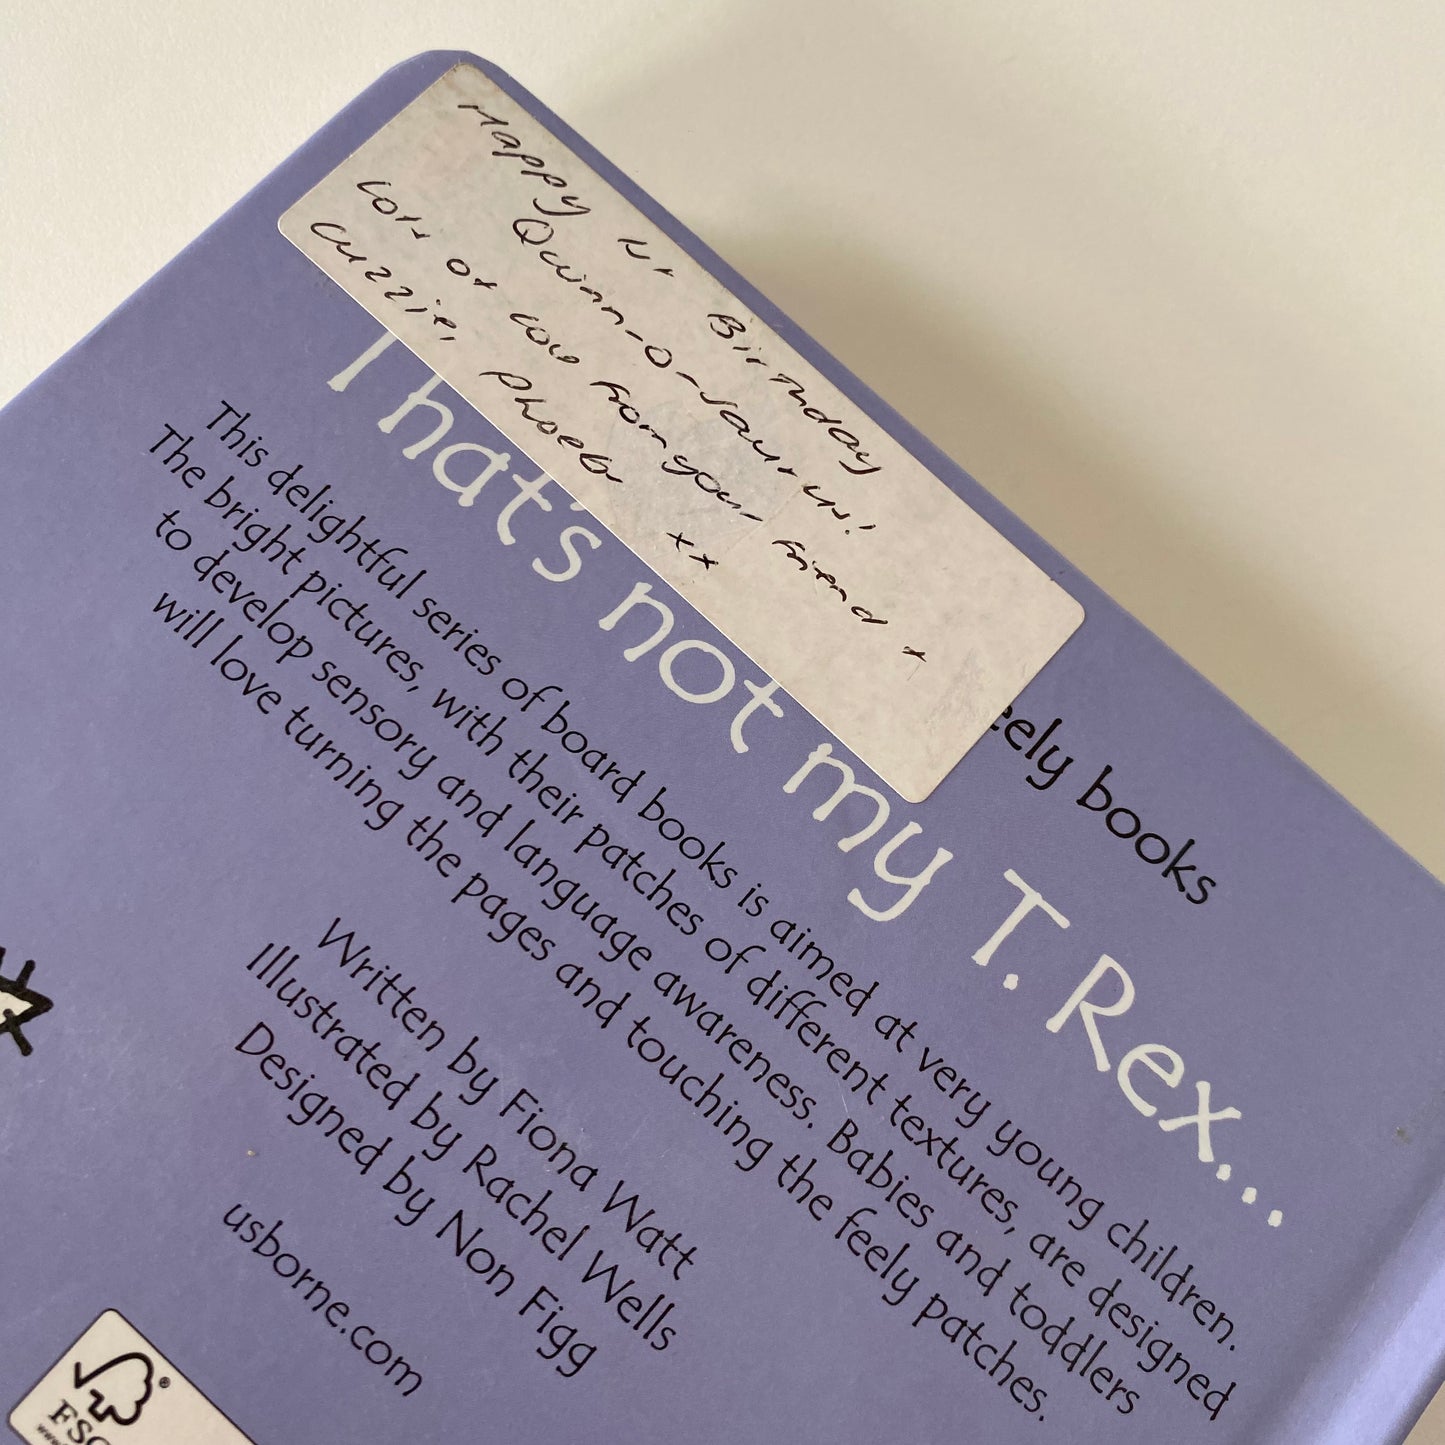 Happy 1st Birthday
Quinn-O-saurus!
Lots of love from your friend +
cuzzie, Phoebe xx
eely books
That's not my T. Rex...
This delightful series of board books is aimed at very young children.
The bright pictures, with their patches of different textures, are designed
to develop sensory and language awareness. Babies and toddlers
will love turning the pages and touching the feely patches.
Written by Fiona Watt
Illustrated by Rachel Wells
Designed by Non Figg
usborne.com
FSC